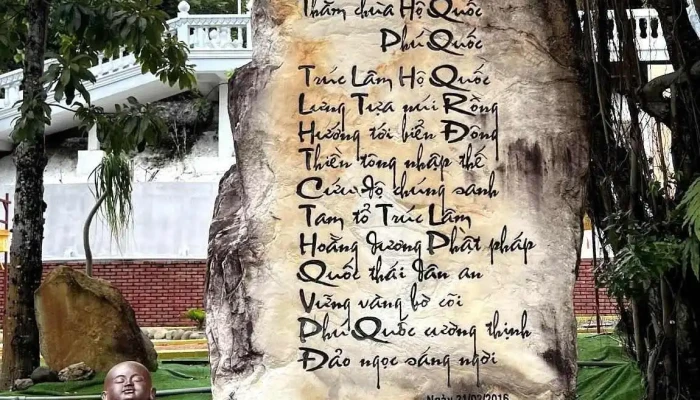 Thăm chùa Hộ Quốc
Phú Quốc
Trúc Lâm Hộ Quốc
Lưng Tựa núi Rồng
Hướng tới biển Đông
Thiền tông nhập thế
Cứu độ chúng sanh
Tam tổ Trúc Lâm
Hoằng dương Phật pháp
Quốc thái dân an
Vững vàng bờ cõi
Phú Quốc cường thịnh
Đảo ngọc sáng ngời
Ngày 21/02/2016